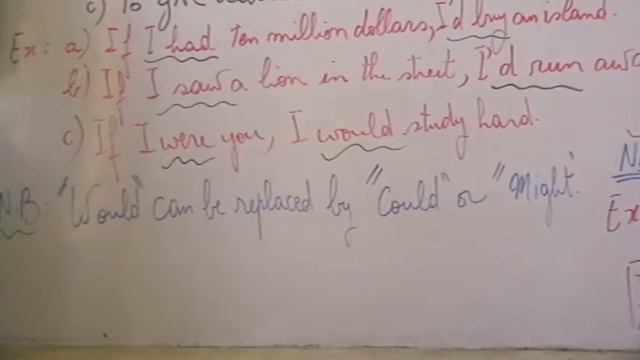 c) To give
Ex: a) If I had ten million dollars, I'd buy an island.
b) If I saw a lion in the street, I'd run
c) If I were you, I would study hard.
N.B: "Would" can be replaced by "Could" or "Might".
Ex